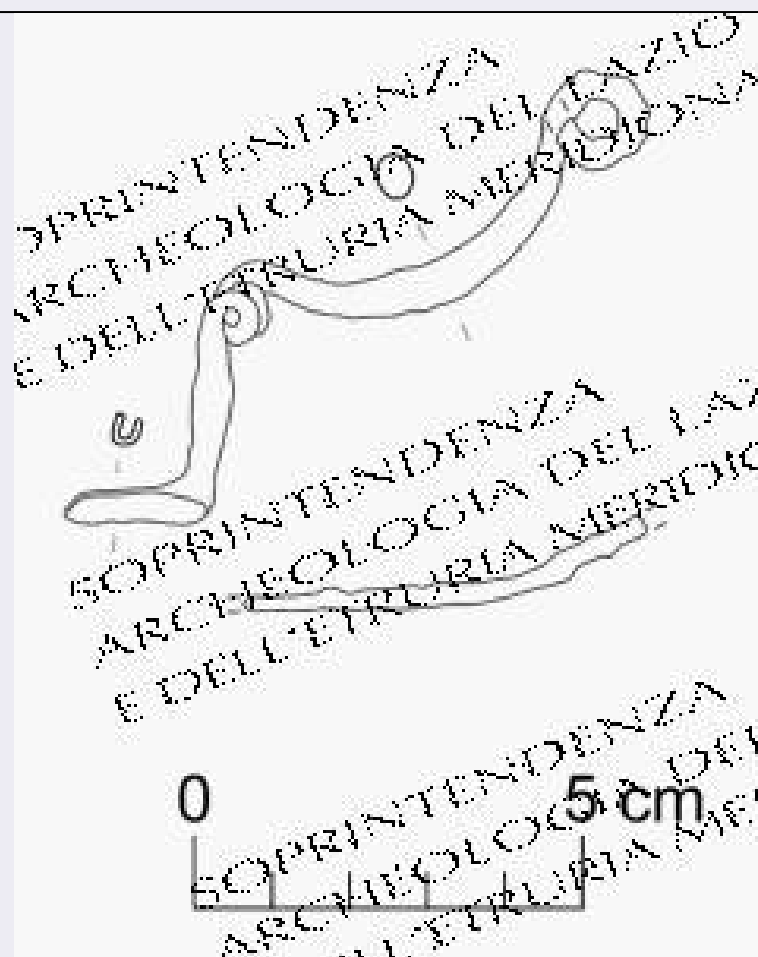 SOPRINTENDENZA
ARCHEOLOGIA DEL LAZIO
E DELL'ETRURIA MERIDIONA
SOPRINTENDENZA
ARCHEOLOGIA DEL LAZ
E DELL'ETRURIA MERIDIO
0 5 cm
SOPRINTENDENZA
ARCHEOLOGIA DEL
DELL'ETRURIA ME